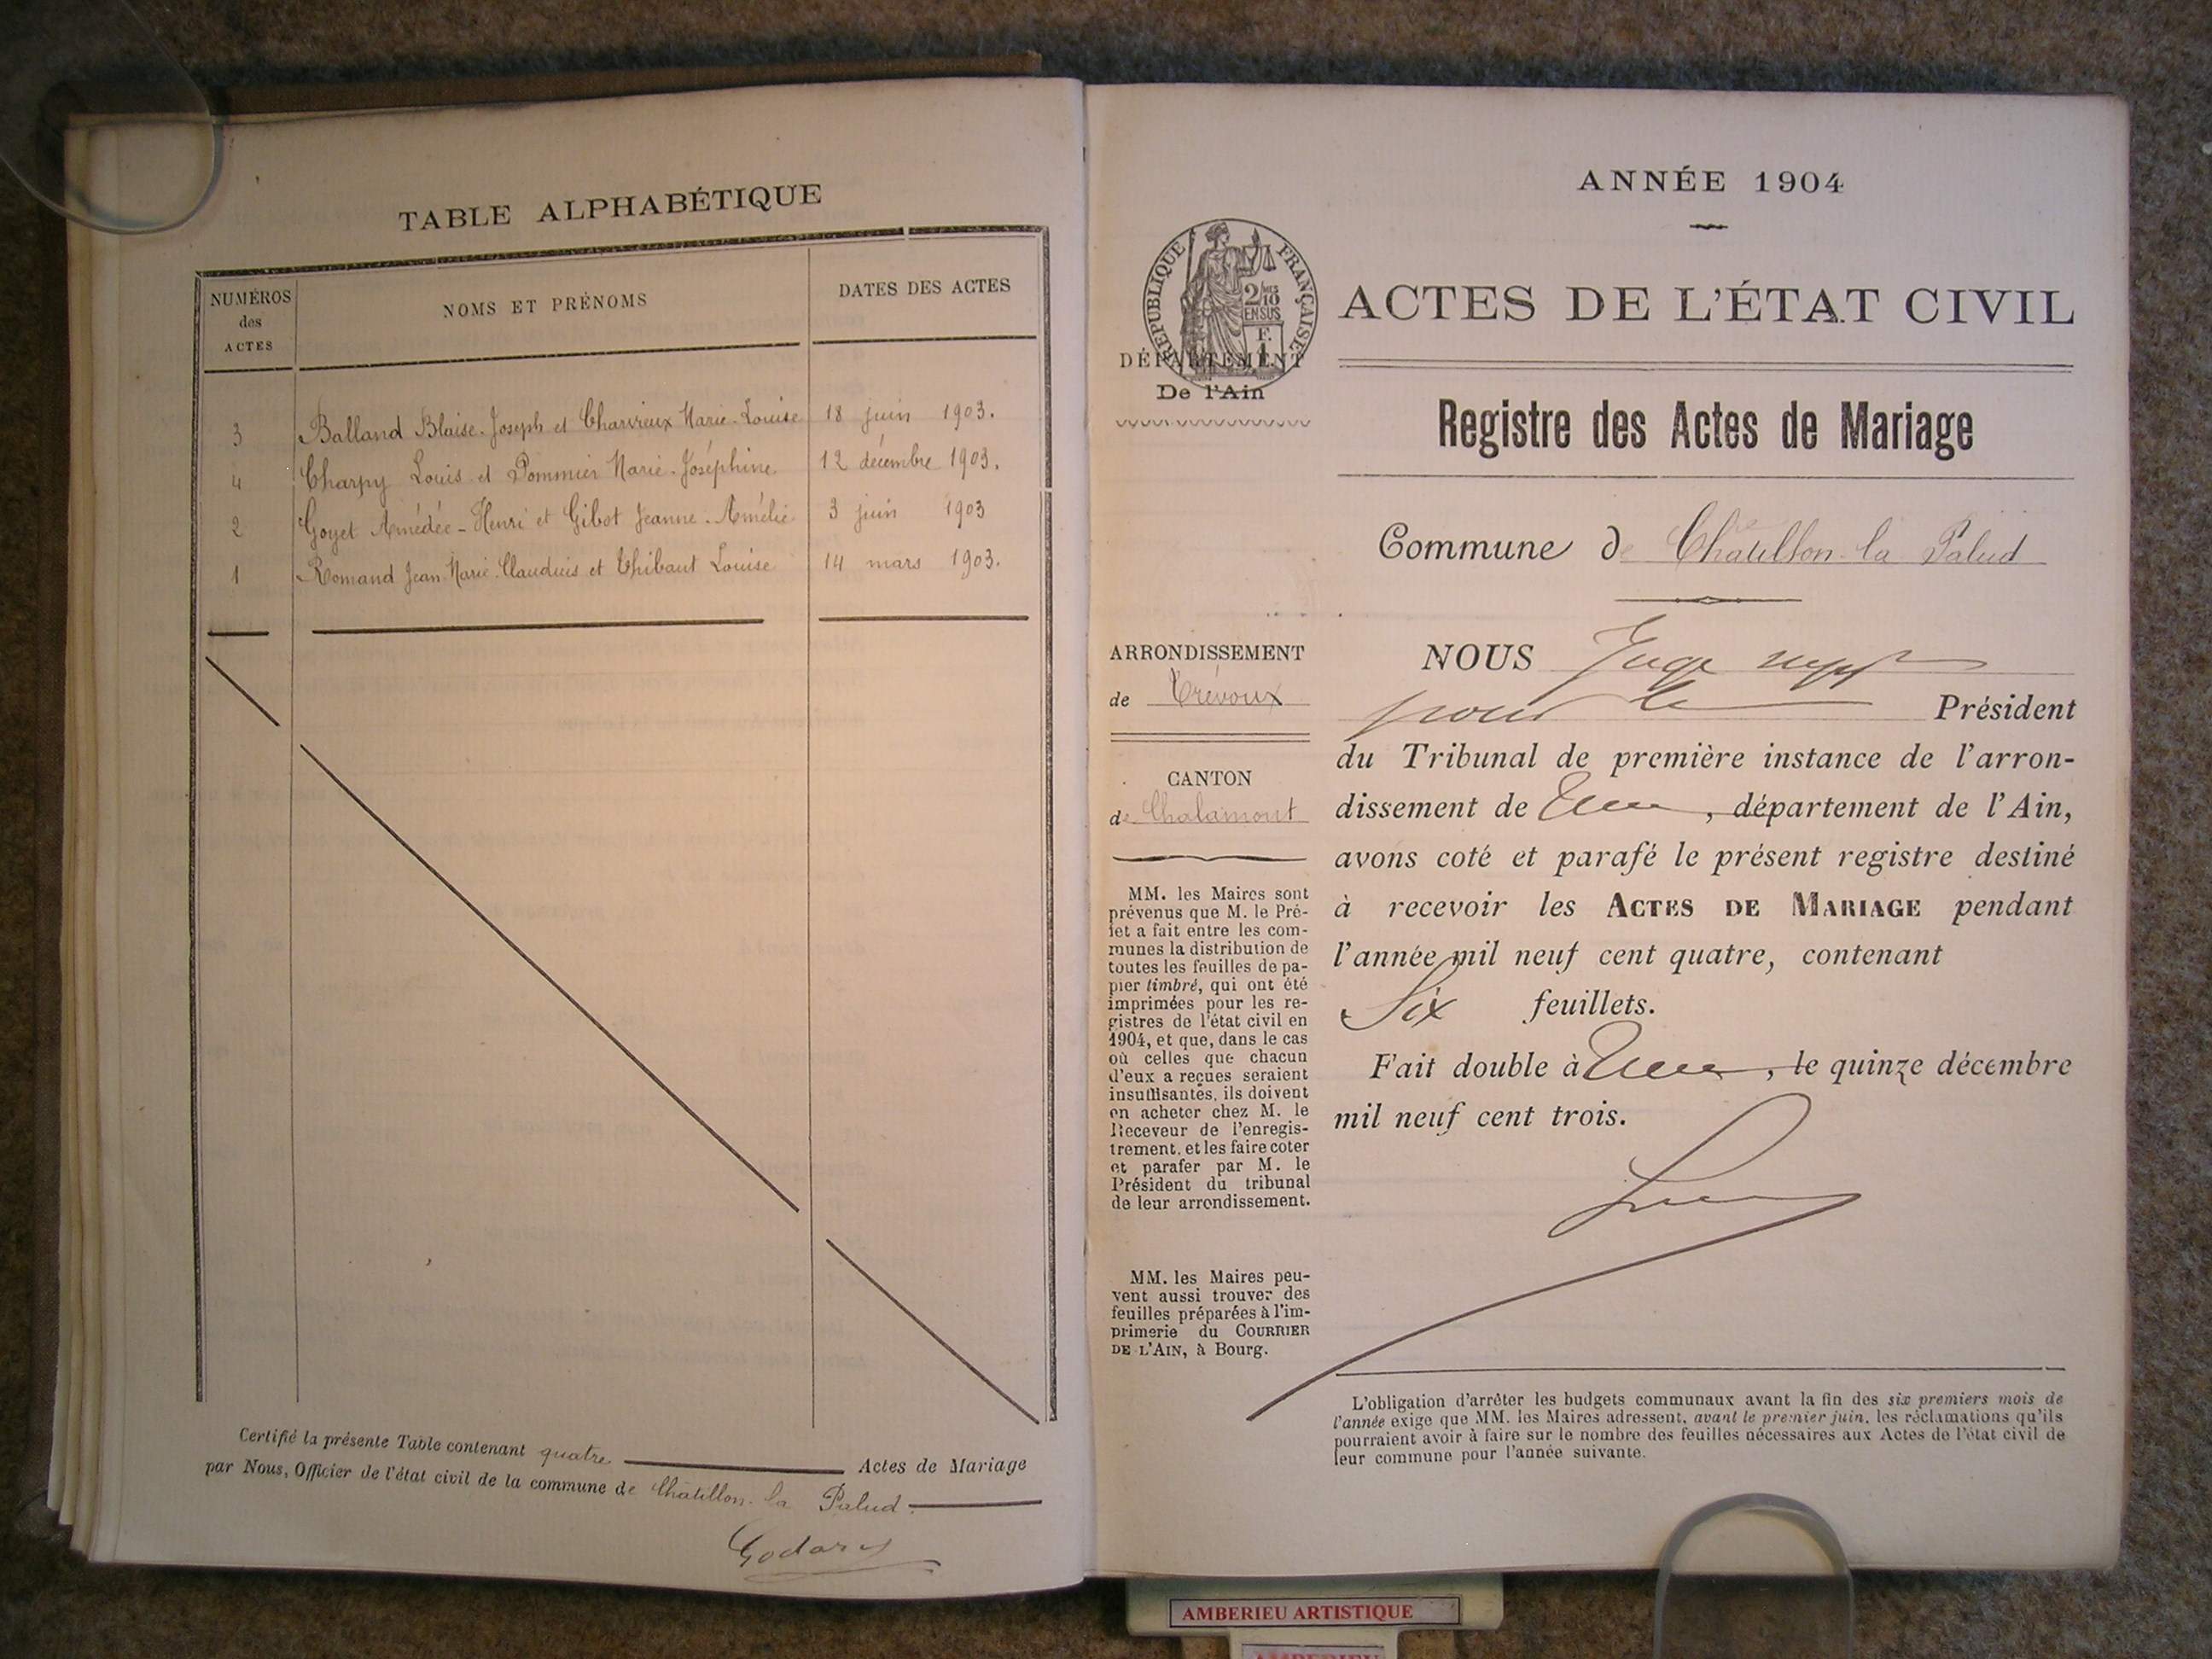 TABLE ALPHABÉTIQUE
NUMÉROS
des
ACTES
NOMS ET PRÉNOMS
DATES DES ACTES
3 Balland Blaise-Joseph et Charvieux Marie-Louise 18 juin 1903.
4 Charpy Louis et Pommier Marie-Joséphine 12 décembre 1903.
2 Goyet Amédée-Henri et Gibot Jeanne-Amélie 3 juin 1903
1 Romand Jean-Marie-Claudius et Thibaut Louise 14 mars 1903.
Certifié la présente Table contenant quatre Actes de Mariage
par Nous, Officier de l'état civil de la commune de Châtillon-la Palud.
Godard
ANNÉE 1904
RÉPUBLIQUE FRANÇAISE
2/10
EN SUS
F.
1
DÉPARTEMENT
De l'Ain
ACTES DE L'ÉTAT CIVIL
Registre des Actes de Mariage
Commune de Châtillon-la Palud
ARRONDISSEMENT
de Trévoux
CANTON
de Chalamont
MM. les Maires sont
prévenus que M. le Pré-
fet a fait entre les com-
munes la distribution de
toutes les feuilles de pa-
pier timbré, qui ont été
imprimées pour les re-
gistres de l'état civil en
1904, et que, dans le cas
où celles que chacun
d'eux a reçues seraient
insuffisantes, ils doivent
en acheter chez M. le
Receveur de l'enregis-
trement, et les faire coter
et parafer par M. le
Président du tribunal
de leur arrondissement.
MM. les Maires peu-
vent aussi trouver des
feuilles préparées à l'im-
primerie du COURRIER
DE L'AIN, à Bourg.
NOUS Juge
pour le Président
du Tribunal de première instance de l'arron-
dissement de , département de l'Ain,
avons coté et parafé le présent registre destiné
à recevoir les ACTES DE MARIAGE pendant
l'année mil neuf cent quatre, contenant
Six feuillets.
Fait double à , le quinze décembre
mil neuf cent trois.
L'obligation d'arrêter les budgets communaux avant la fin des six premiers mois de
l'année exige que MM. les Maires adressent, avant le premier juin, les réclamations qu'ils
pourraient avoir à faire sur le nombre des feuilles nécessaires aux Actes de l'état civil de
leur commune pour l'année suivante.
AMBERIEU ARTISTIQUE
AMBERIEU